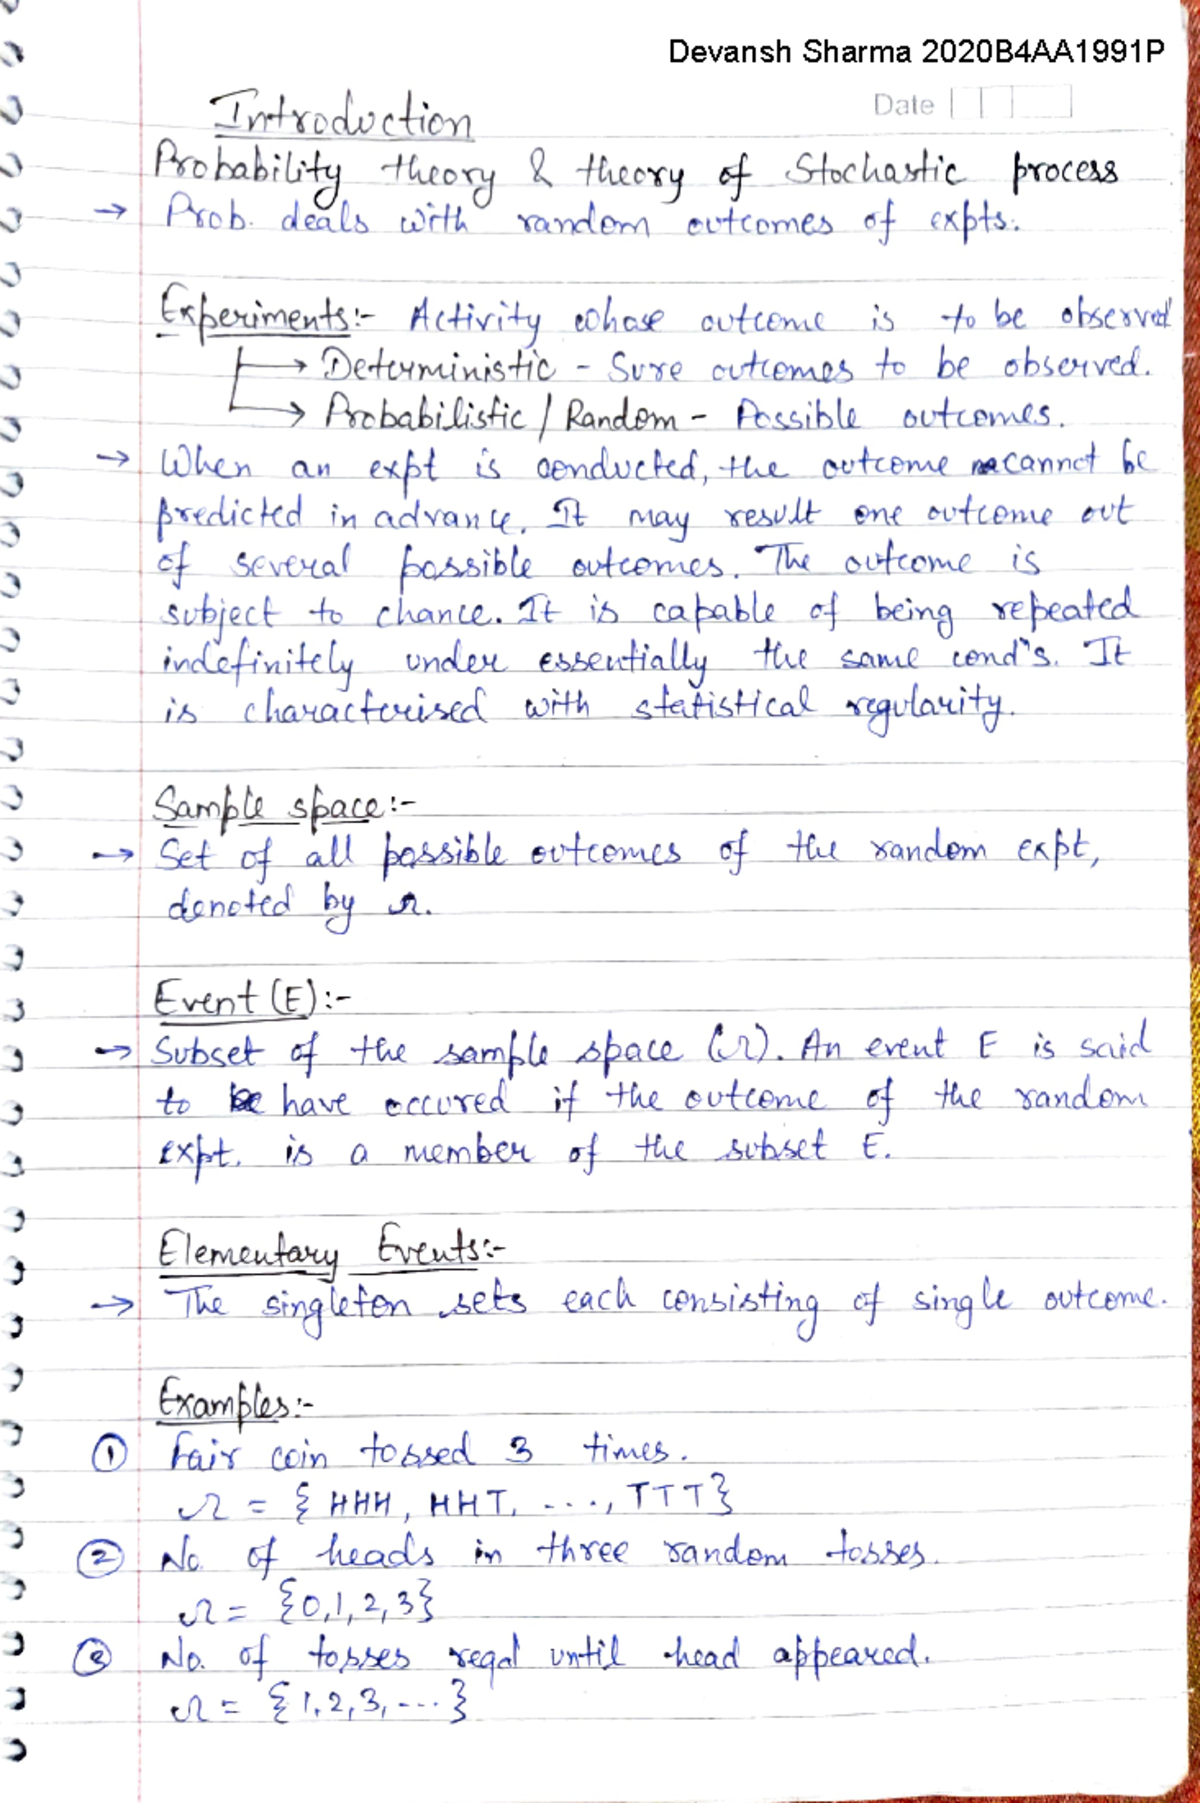 Devansh Sharma 2020B4AA1991P
Date
Introduction
Probability theory & theory of Stochastic process
→ Prob. deals with random outcomes of expts.
Experiments:- Activity whose outcome is to be observed
→ Deterministic - Sure outcomes to be observed.
→ Probabilistic / Random - Possible outcomes.
→ When an expt is conducted, the outcome cannot be
predicted in advance. It may result one outcome out
of several possible outcomes. The outcome is
subject to chance. It is capable of being repeated
indefinitely under essentially the same condⁿs. It
is characterised with statistical regularity.
Sample space:-
→ Set of all possible outcomes of the random expt,
denoted by Ω.
Event (E):-
→ Subset of the sample space (Ω). An event E is said
to have occured if the outcome of the random
expt. is a member of the subset E.
Elementary Events:-
→ The singleton sets each consisting of single outcome.
Examples:-
① Fair coin tossed 3 times.
Ω = {HHH, HHT, ...., TTT}
② No. of heads in three random tosses.
Ω = {0,1,2,3}
③ No. of tosses reqd until head appeared.
Ω = {1,2,3,...}